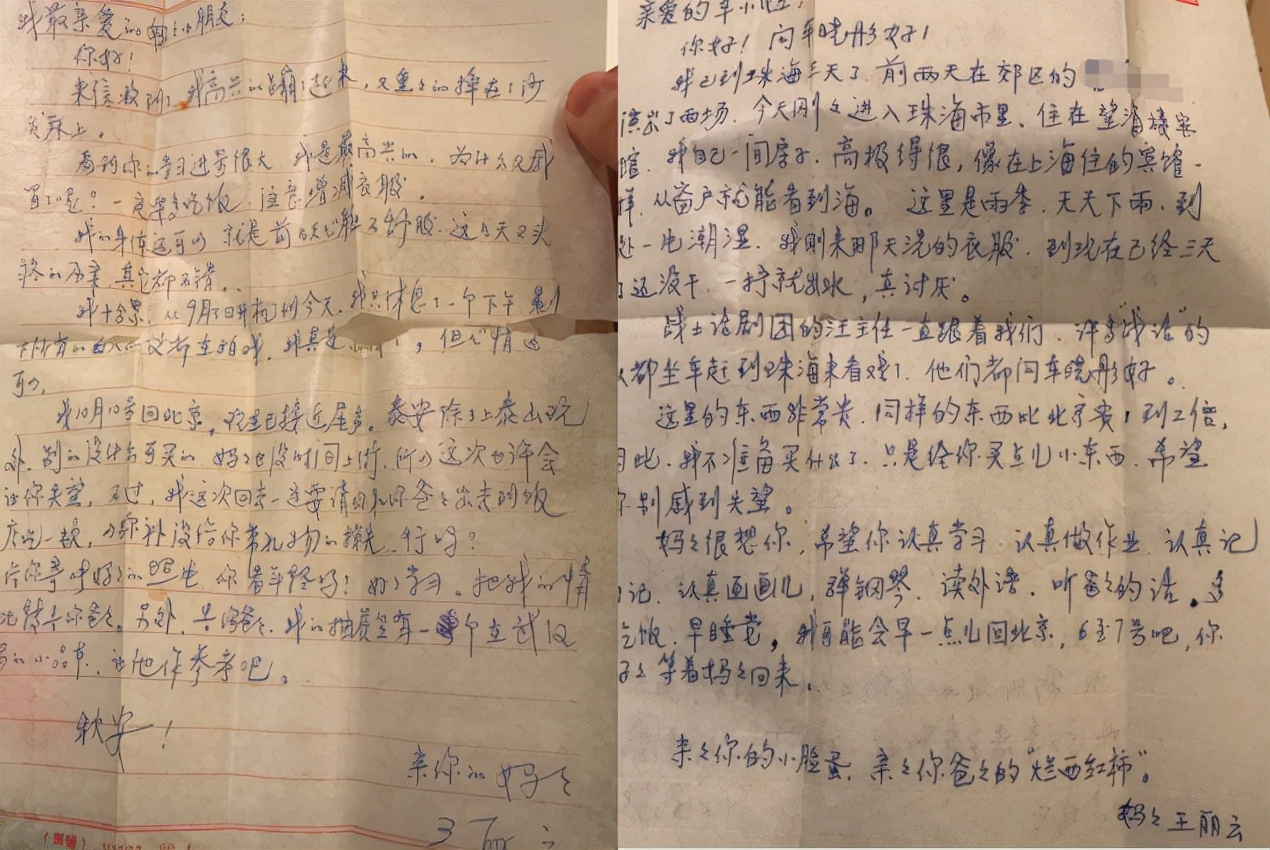 我最亲爱的小朋友：
你好！
来信收到了，我高兴的蹦了起来，又重重的摔在了沙
发床上。
看到你的学习进步很大，我是最高兴的，为什么又感
冒了呢？一定要多吃饭，注意增减衣服。
我的身体还可以，就是前几天心脏不舒服，这几天又头
疼的厉害，其它都不错。
从9月3日开机到今天，我只休息了一个下午，剩
下所有的 都在拍戏，我真是 ，但心情还
可以。
我10月10号回北京，现在已接近尾声。泰安除了上泰山玩
外，别的没什么可买的，妈妈也没时间上街，所以这次也许会
让你失望，不过，我这次回来一定要请你和你爸爸出去到饭
店吃一顿，以弥补没给你带礼物的损失，行吗？
你看年轻吗？好好学习，把我的情
况转告你爸爸。另外，告诉爸爸，我的抽屉里有一个在武汉
的小品本，让他作参考吧。
秋安！
亲你的妈妈
王丽云
亲爱的车小胜：
你好！问车晓彤好！
我已到珠海三天了，前两天在郊区的
演出了两场，今天刚刚进入珠海市里，住在望海楼宾
馆，我自己一间房子，高极得很，像在上海住的宾馆一
样，从窗户就能看到海。这里是雨季，天天下雨，到
处一片潮湿，我刚来那天洗的衣服，到现在已经三天
了还没干，一拧就出水，真讨厌。
战士话剧团的汪主任一直跟着我们，许多“战话”的
人都坐车赶到珠海来看戏了，他们都问车晓彤好。
这里的东西非常贵，同样的东西比北京贵1到2倍，
因此，我不准备买什么了，只是给你买点儿小东西，希望
你别感到失望。
妈妈很想你，希望你认真学习，认真做作业，认真记
日记，认真画画儿，弹钢琴，读外语，听爸爸的话。多
吃饭，早睡觉，我可能会早一点儿回北京，6至7号吧，你
好好等着妈妈回来。
亲亲你的小脸蛋，亲亲你爸爸的“烂西红柿”。
妈妈 王丽云